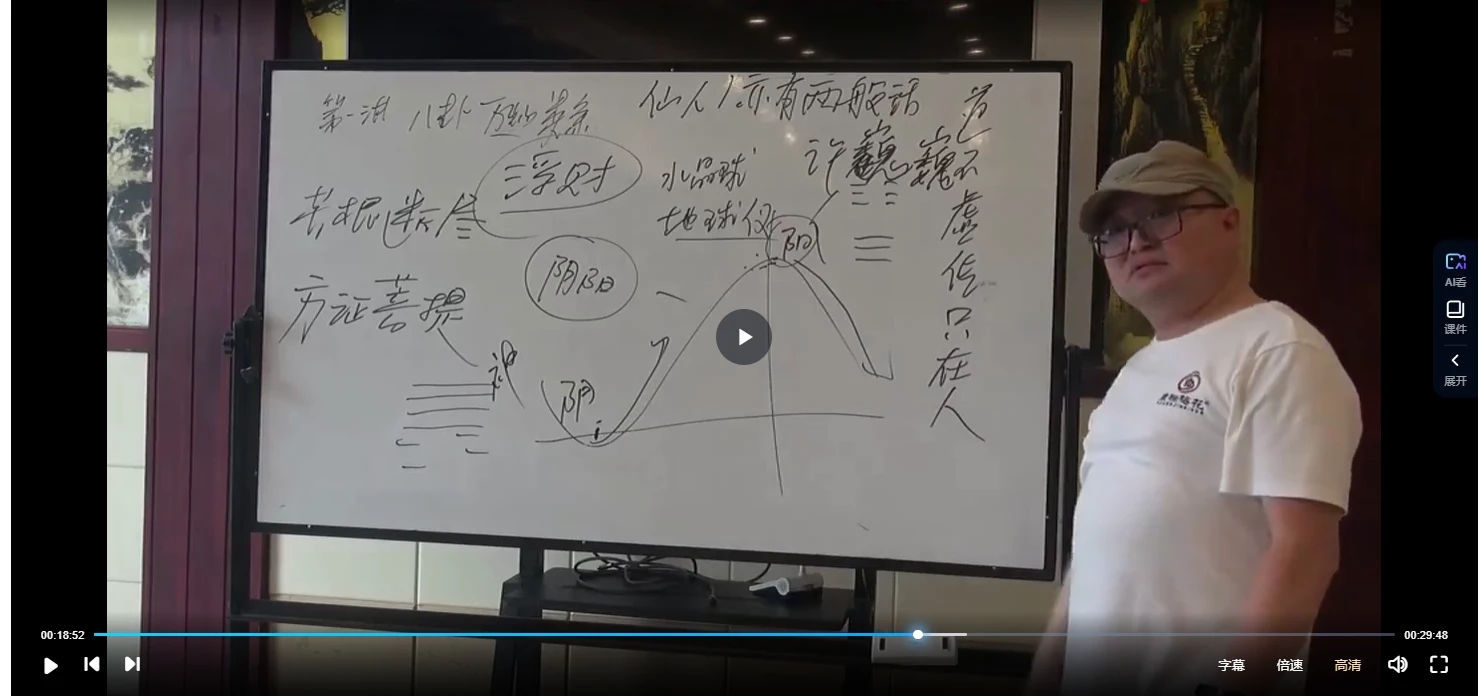 第一讲 八卦万物类象
仙人亦有两般话
道不虚传只在人
浮财
水晶球
许巍 巍
苦根断尽
地球仪
阳
阴阳
方证菩提
神
阴
AI看
课件
展开
00:18:52
00:29:48
字幕
倍速
高清